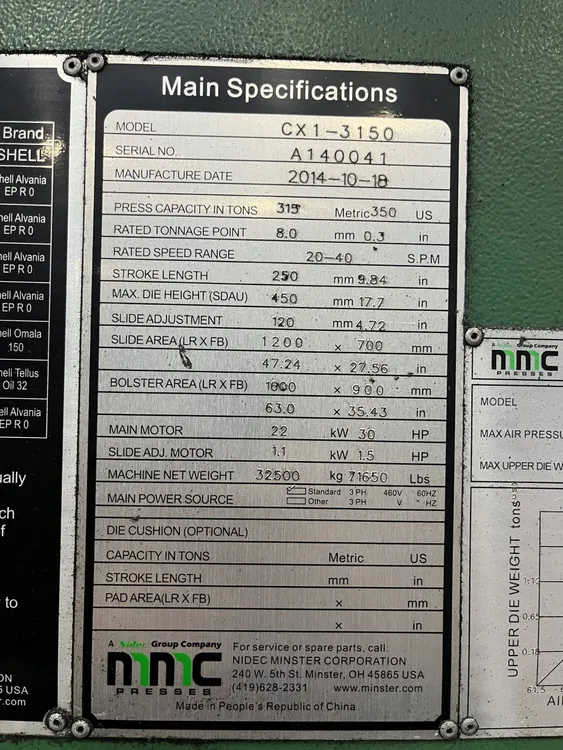 Brand
SHELL
Shell Alvania
EP R 0
Shell Alvania
EP R 0
Shell Alvania
EP R 0
Shell Alvania
EP R 0
Shell Omala
150
Shell Tellus
Oil 32
Shell Alvania
EP R 0
Main Specifications
MODEL CX1-3150
SERIAL NO. A140041
MANUFACTURE DATE 2014-10-18
PRESS CAPACITY IN TONS 315 Metric 350 US
RATED TONNAGE POINT 8.0 mm 0.3 in
RATED SPEED RANGE 20-40 S.P.M
STROKE LENGTH 250 mm 9.84 in
MAX. DIE HEIGHT (SDAU) 450 mm 17.7 in
SLIDE ADJUSTMENT 120 mm 4.72 in
SLIDE AREA (LR X FB) 1200 x 700 mm
47.24 x 27.56 in
BOLSTER AREA (LR X FB) x 900 mm
63.0 x 35.43 in
MAIN MOTOR 22 kW 30 HP
SLIDE ADJ. MOTOR 1.1 kW 1.5 HP
MACHINE NET WEIGHT 32500 kg 71650 Lbs
MAIN POWER SOURCE Standard 3 PH 460V 60HZ
Other 3 PH V HZ
DIE CUSHION (OPTIONAL)
CAPACITY IN TONS Metric US
STROKE LENGTH mm in
PAD AREA(LR X FB) x mm
x in
A Nidec Group Company
mmc
PRESSES
For service or spare parts, call:
NIDEC MINSTER CORPORATION
240 W. 5th St. Minster, OH 45865 USA
(419)628-2331 www.minster.com
Made in People's Republic of China
A Nidec Group Company
mmc
PRESSES
MODEL
MAX AIR
MAX UPPER DIE
UPPER DIE WEIGHT tons
0.65
0.18
61.5